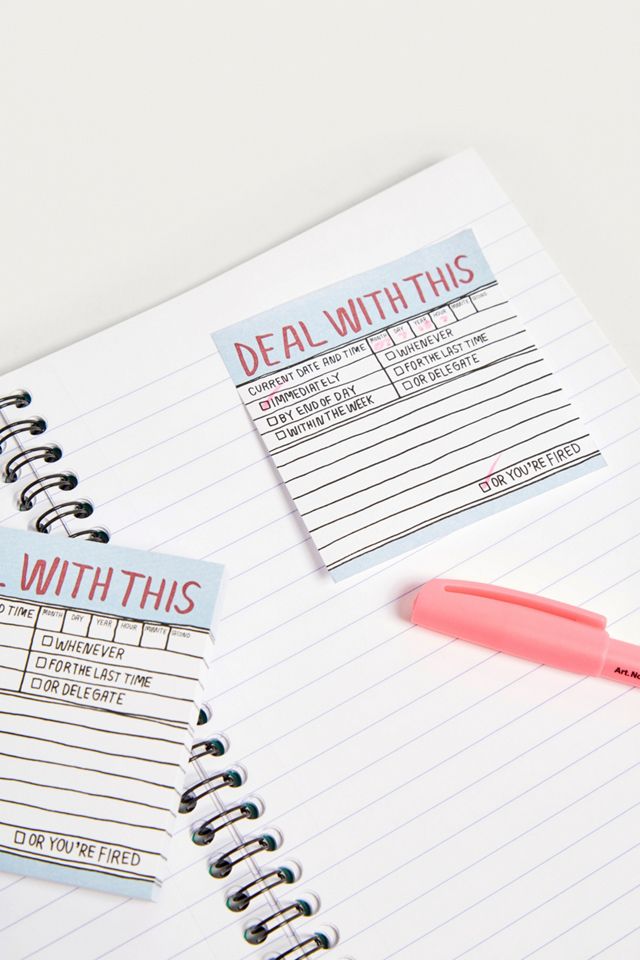 DEAL WITH THIS
CURRENT DATE AND TIME MONTH DAY YEAR HOUR MINUTE SECOND
IMMEDIATELY WHENEVER
BY END OF DAY FOR THE LAST TIME
WITHIN THE WEEK OR DELEGATE
OR YOU'RE FIRED
Art.No
L WITH THIS
D TIME MONTH DAY YEAR HOUR MINUTE SECOND
WHENEVER
FOR THE LAST TIME
OR DELEGATE
OR YOU'RE FIRED